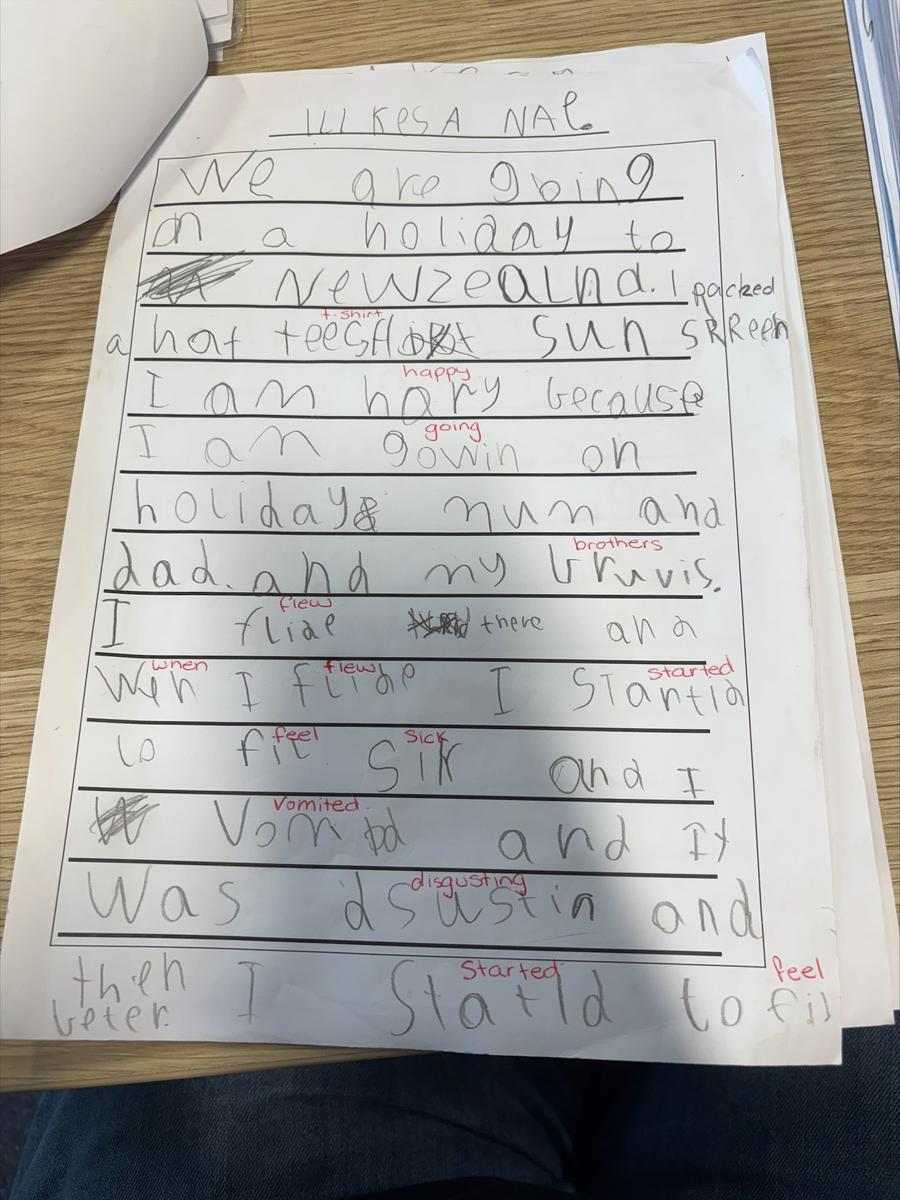 We are going
on a holiday to
Newzealnd. I packed
t-shirt
a hat teeSH sun SRReen
happy
I am hapy because
going
I am gowin on
holiday & mum and
brothers
dad. and my bruvis.
flew
I fliae there and
when flew started
Wen I fliae I Startid
feel Sick
to fil Sik and I
Vomited
Vomitid and It
disgusting
Was dsustin and
Started feel
then I Statid to fil
beter.